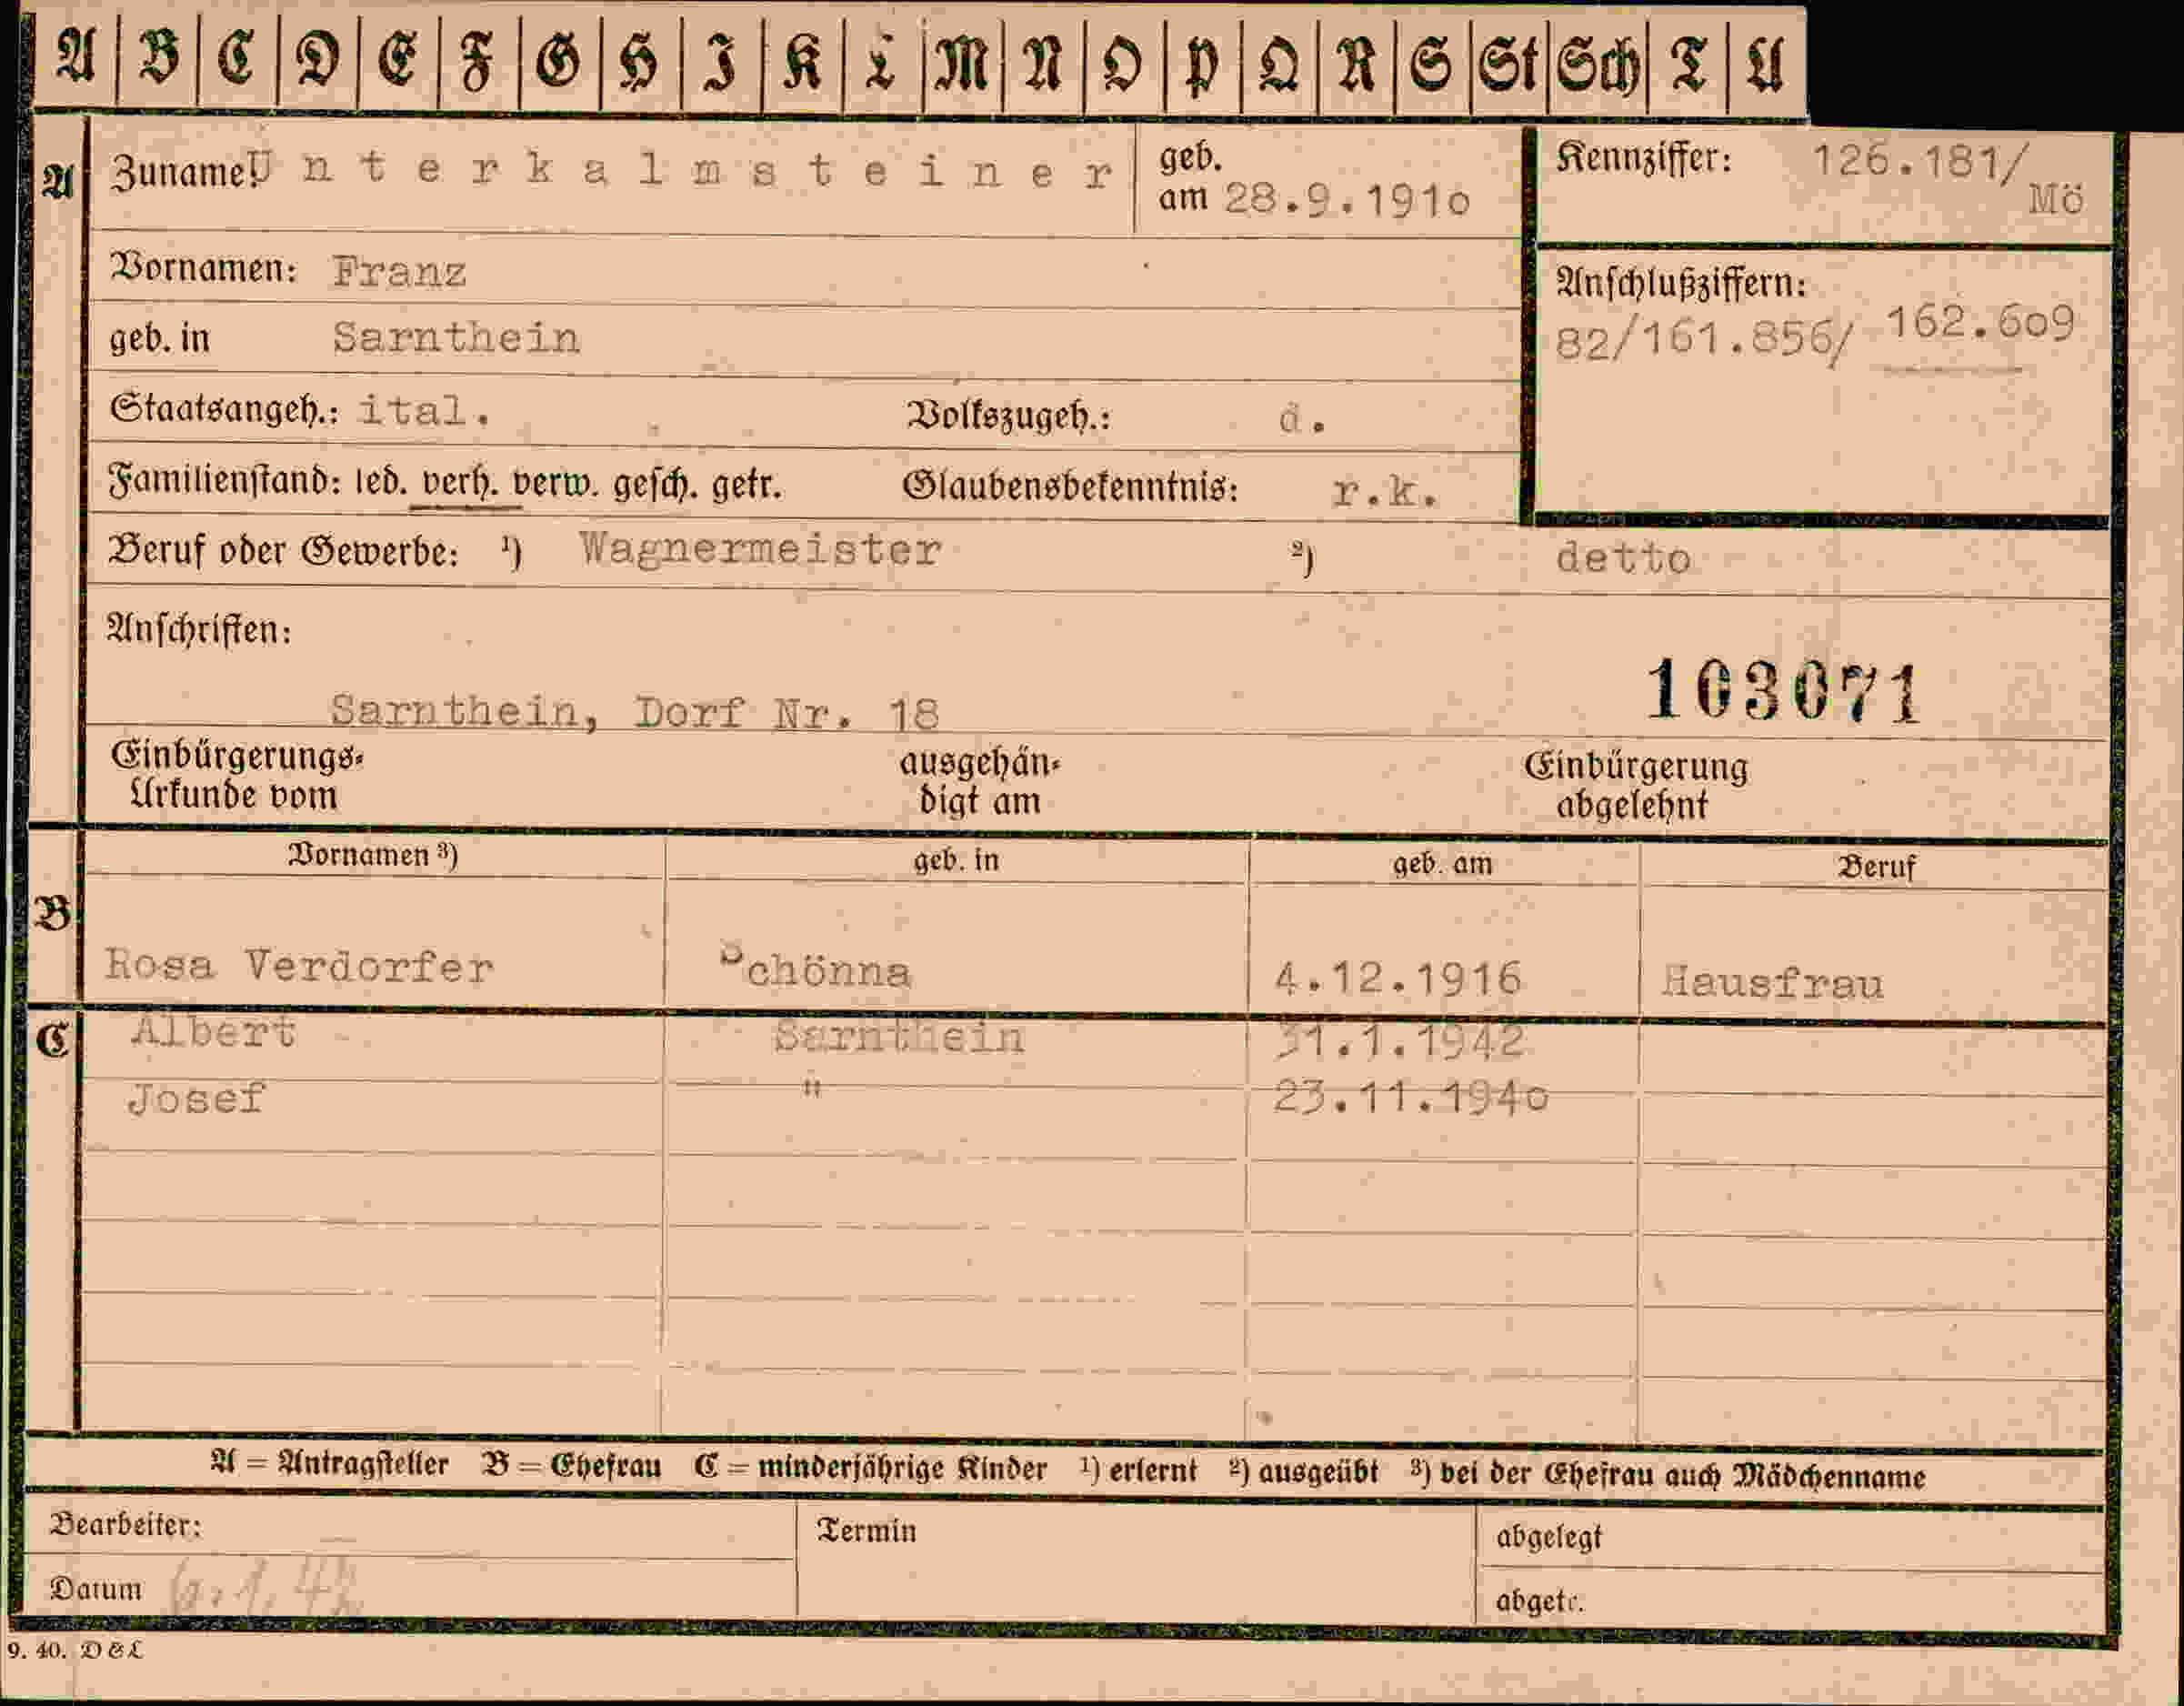 A B C D E F G H I K L M N O P Q R S St Sch T U
A Zuname: U n t e r k a l m s t e i n e r geb. am 28.9.191o Kennziffer: 126.181/ Mö
Vornamen: Franz
Anschlußziffern:
geb. in Sarnthein 82/161.856/ 162.6o9
Staatsangeh.: ital. Volkszugeh.: d.
Familienstand: led. verh. verw. gesch. getr. Glaubensbekenntnis: r.k.
Beruf oder Gewerbe: ¹) Wagnermeister ²) detto
Anschriften:
103071
Sarnthein, Dorf Nr. 18
Einbürgerungs- ausgehän- Einbürgerung
Urkunde vom digt am abgelehnt
Vornamen ³) geb. in geb. am Beruf
B
Rosa Verdorfer Schönna 4.12.1916 Hausfrau
C Albert Sarnthein 31.1.1942
Josef " 23.11.194o
A = Antragsteller B = Ehefrau C = minderjährige Kinder ¹) erlernt ²) ausgeübt ³) bei der Ehefrau auch Mädchenname
Bearbeiter: Termin abgelegt
Datum abgetr.
9. 40. D & L